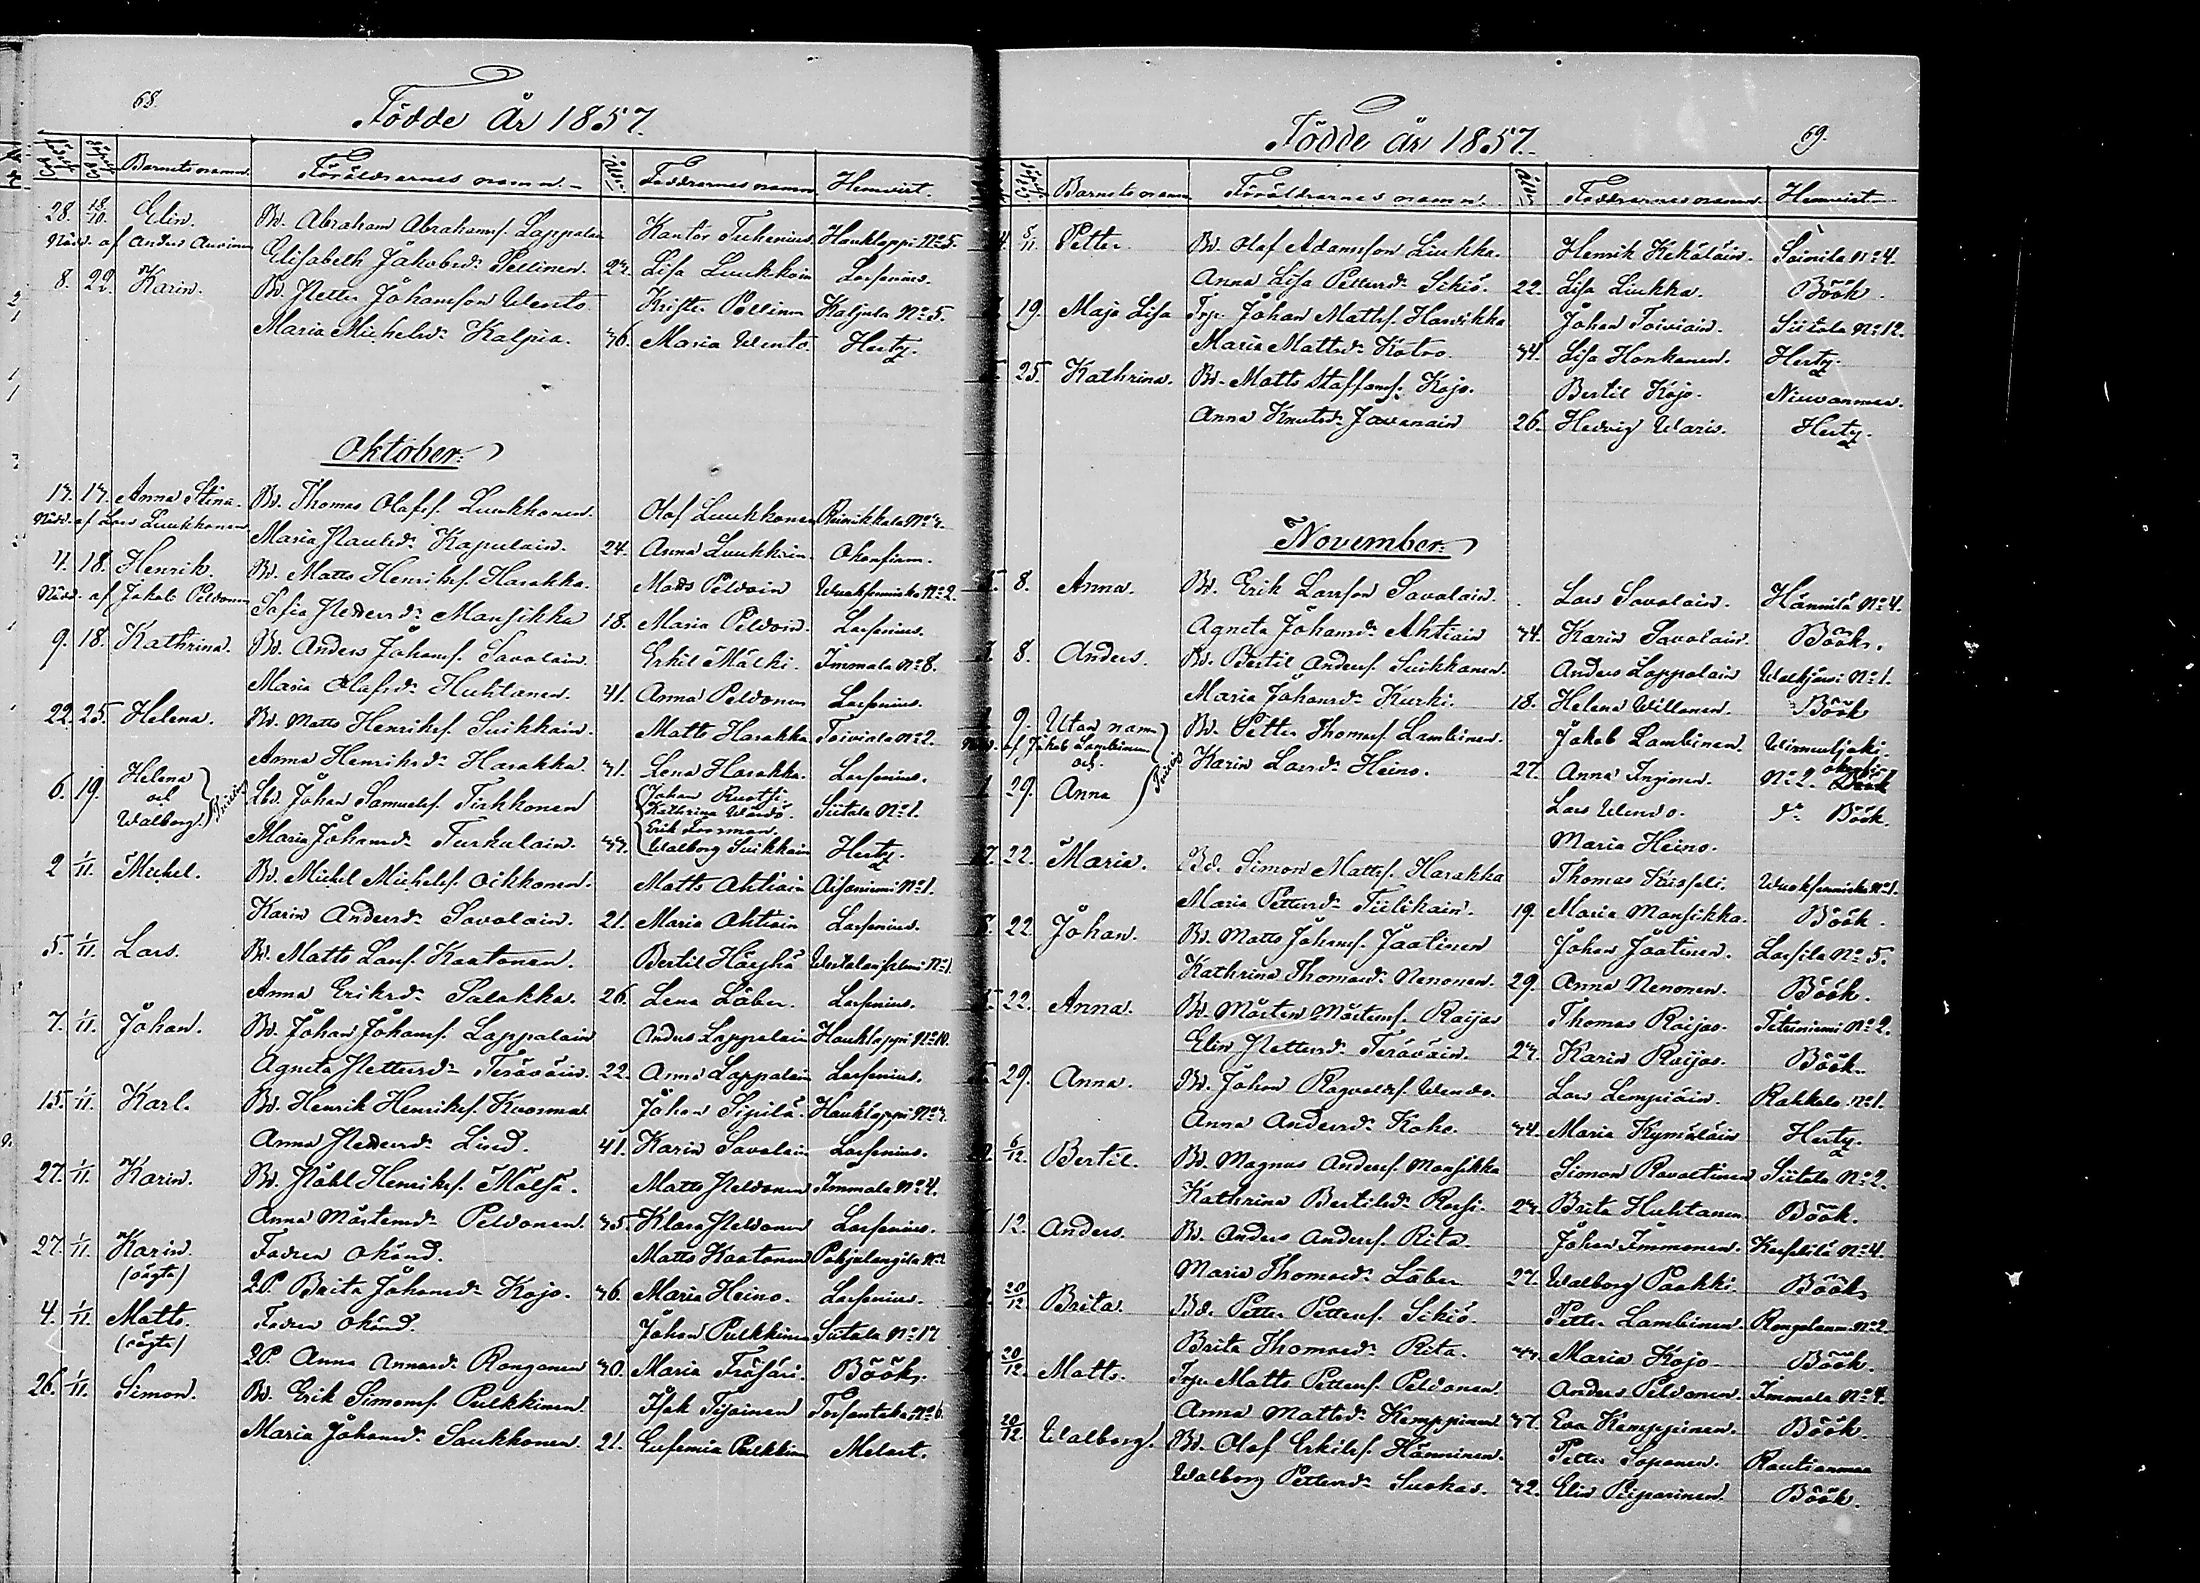 68.
Födde År 1857.
Barnets namn. Föräldrarnes namn. Ålder Faddrarnes namn Hemvist.
28. 18/10. Elin. Bd. Abraham Abrahamsf. Lappalain Kantor Hauklappi No 5.
Nödd. af Anders Auvinen Elisabeth Johobsd. Pellinen. 27. Lisa Luukkain Lorsenius.
8. 22. Karin. Bd. Petter Johansson Wento Krister Pellinen Kaljula No 5.
Maria Michelsd. Kalpia. 36. Maria Wento Hertz.
Oktober.
17. 17. Anna Stina. Bd. Thomas Olafsf. Luukkonen. Olof Luukkonen Reinikkala No 7.
Nödd. af Lars Luukkonen Maria Paulsd. Kapulain. 24. Anna Luukkain
4. 18. Henrik. Bd. Matts Henriksf. Harakka. Matts Peldoin Wuoksenniska No 2.
Nödd. af Jakob Peldonen Sofia Peddersd. Mansikka 18. Maria Peldoin. Lorsenius.
9. 18. Kathrina. Bd. Anders Johansf. Savolain. Erkil Mälki. Immala No 8.
Maria Olafsd. Huhtanen. 41. Anna Peldonen Lorsenius.
22. 25. Helena. Bd. Matts Henriksf. Suikkain. Matts Harakka Toiviala No 2.
Anna Henriksd. Harakka. 31. Lena Harakka. Lorsenius.
6. 19. Helena och Walborg. Bd. Johan Samuelsf. Tiakkonen Johan Ruotsi. Kathrina Siitola No 1.
Erik
Maria Johansd. Turkulain. 37. Walborg Suikkain Hertz.
2 1/11. Michel. Bd. Michel Michelsf. Oikkonen. Matts Ahtiain No 1.
Karin Andersd. Savolain. 21. Maria Ahtiain Lorsenius.
5. 1/11. Lars. Bd. Matts Larsf. Kaatonen. Bertil Häyhä No 1.
Anna Eriksd. Salakka. 26. Lena Läber. Lorsenius.
7. 1/11. Johan. Bd. Johan Johansf. Lappalain Anders Lappalain Hauklappi No 10.
Agneta Pettersd. Teräväin. 22. Anna Lappalain Lorsenius.
15. 1/11. Karl. Bd. Henrik Henriksf. Kuosma. Johan Sipilä. Hauklappi No 7.
Anna Peddersd. Lind. 41. Karin Savolain Lorsenius.
27. 1/11. Karin. Bd. Påhl Henriksf. Mälsä. Matts Peldonen Immala No 4.
Anna Mårtensd. Peldonen. 35. Klara Peldonen Lorsenius.
27. 1/11. Karin Fadren okänd. Matts Kaatonen Pohjalangila No 2
(oägta) 2P. Brita Johansd. Kojo. 36. Maria Heino. Lorsenius.
4. 1/11. Matts. Fadren okänd. Johan Pulkkinen Siitola No 17
(oägta) 2P. Anna Annasd. Ronganen 30. Maria Böök.
26. 1/11. Simon. Bd. Erik Simonsf. Pulkkinen. Isak Tijainen Torsantaka No 6.
Maria Johansd. Saukkonen. 21. Eufemia Pulkkinen Melart.
Födde år 1857. 69.
Barnets namn Föräldrarnes namn. Ålder Faddrarnes namn. Hemvist.
4. 8/11 Petter Bd. Olof Adamsson Liukka. Henrik Kekäläin. Soinila No 4.
Anna Lisa Pettersd. Sikiö. 22. Lisa Liukka. Böök.
19. Maja Lisa Torp. Johan Mattsf. Havikka Johan Toiviain. Siitola No 12.
Maria Mattsd. Kotro. 34. Lisa Honkanen. Hertz.
25. Kathrina. Bd. Matts Staffansf. Kojo. Bertil Kojo. Niuvanmaa.
Anna Knutsd. Javanain 26. Hedvig Waris. Hertz.
November.
5. 8. Anna. Bd. Erik Larsson Savolain. Lars Savolain. Hännilä No 4.
Agneta Johansd. Ahtiain 34. Karin Savolain. Böök.
8. Anders. Bd. Bertil Andersf. Suikkanen. Anders Lappalain Walkjärvi No 1.
Maria Johansd. Kurki. 18. Helena Willanen. Böök
9. Utan namn Bd. Petter Thomasf. Lambinen. Jakob Lambinen. Wirmuljoki.
Nödd. af Jakob Lambinen och Karin Larsd. Heino. 27. Anna Inginen. No 2. Böök
29. Anna Lars Wendo. Do Böök.
Maria Heino.
22. Maria. Bd. Simon Mattsf. Harakka Thomas Kaisseli. Wuoksenniska No 1.
Maria Pettersd. Tiilikain. 19. Maria Mansikka. Böök.
22. Johan. Bd. Matts Johansf. Jaatinen Johan Jaatinen. Lorsila No 5.
Kathrina Thomasd. Nenonen. 29. Anna Nenonen. Böök.
22. Anna. Bd. Mårten Mårtensf. Raijas Thomas Raijas. Tetriniemi No 2.
Elin Pettersd. Teräväin. 27. Karin Raijas. Böök.
29. Anna. Bd. Johan Ragvaldsf. Wendo. Lars Lempiäin. Rahkola No 1.
Anna Andersd. Koho. 34. Maria Kymäläin Hertz.
6/12. Bertil. Bd. Magnus Andersf. Mansikka Simon Ravattinen Siitola No 2.
Kathrina Bertilsd. Rossi. 27. Brita Huhtanen. Böök.
12. Anders. Bd. Anders Andersf. Rita. Johan Immonen. Kesselilä No 4.
Maria Thomasd. Läber 27. Walborg Paakki. Böök
20/12. Brita. Bd. Petter Pettersf. Sikiö. Petter Lambinen. No 2.
Brita Thomasd. Rita. 37. Maria Kojo. Böök.
20/12. Matts. Torp. Matts Pettersf. Peldonen. Anders Peldonen. Immala No 4.
Anna Mattsd. Kemppinen 37. Eva Kemppinen. Böök.
20/12. Walborg. Bd. Olof Erkilsf. Hänninen. Petter Soponen. Rautianmaa
Walborg Pettersd. Suokas. 32. Elin Piiparinen. Böök.